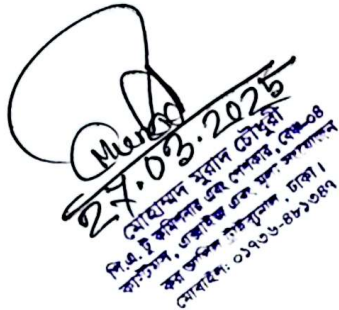 Murad
27.03.2025
মোহাম্মদ মুরাদ চৌধুরী
পি.এ. টু কমিশনার এবং পেশকার, বেঞ্চ-০৪
কাস্টমস, এক্সাইজ এবং মূল্য সংযোজন
কর আপিল ট্রাইব্যুনাল, ঢাকা।
মোবাইল: ০১৭৩৬-৪৮১৩৪৭